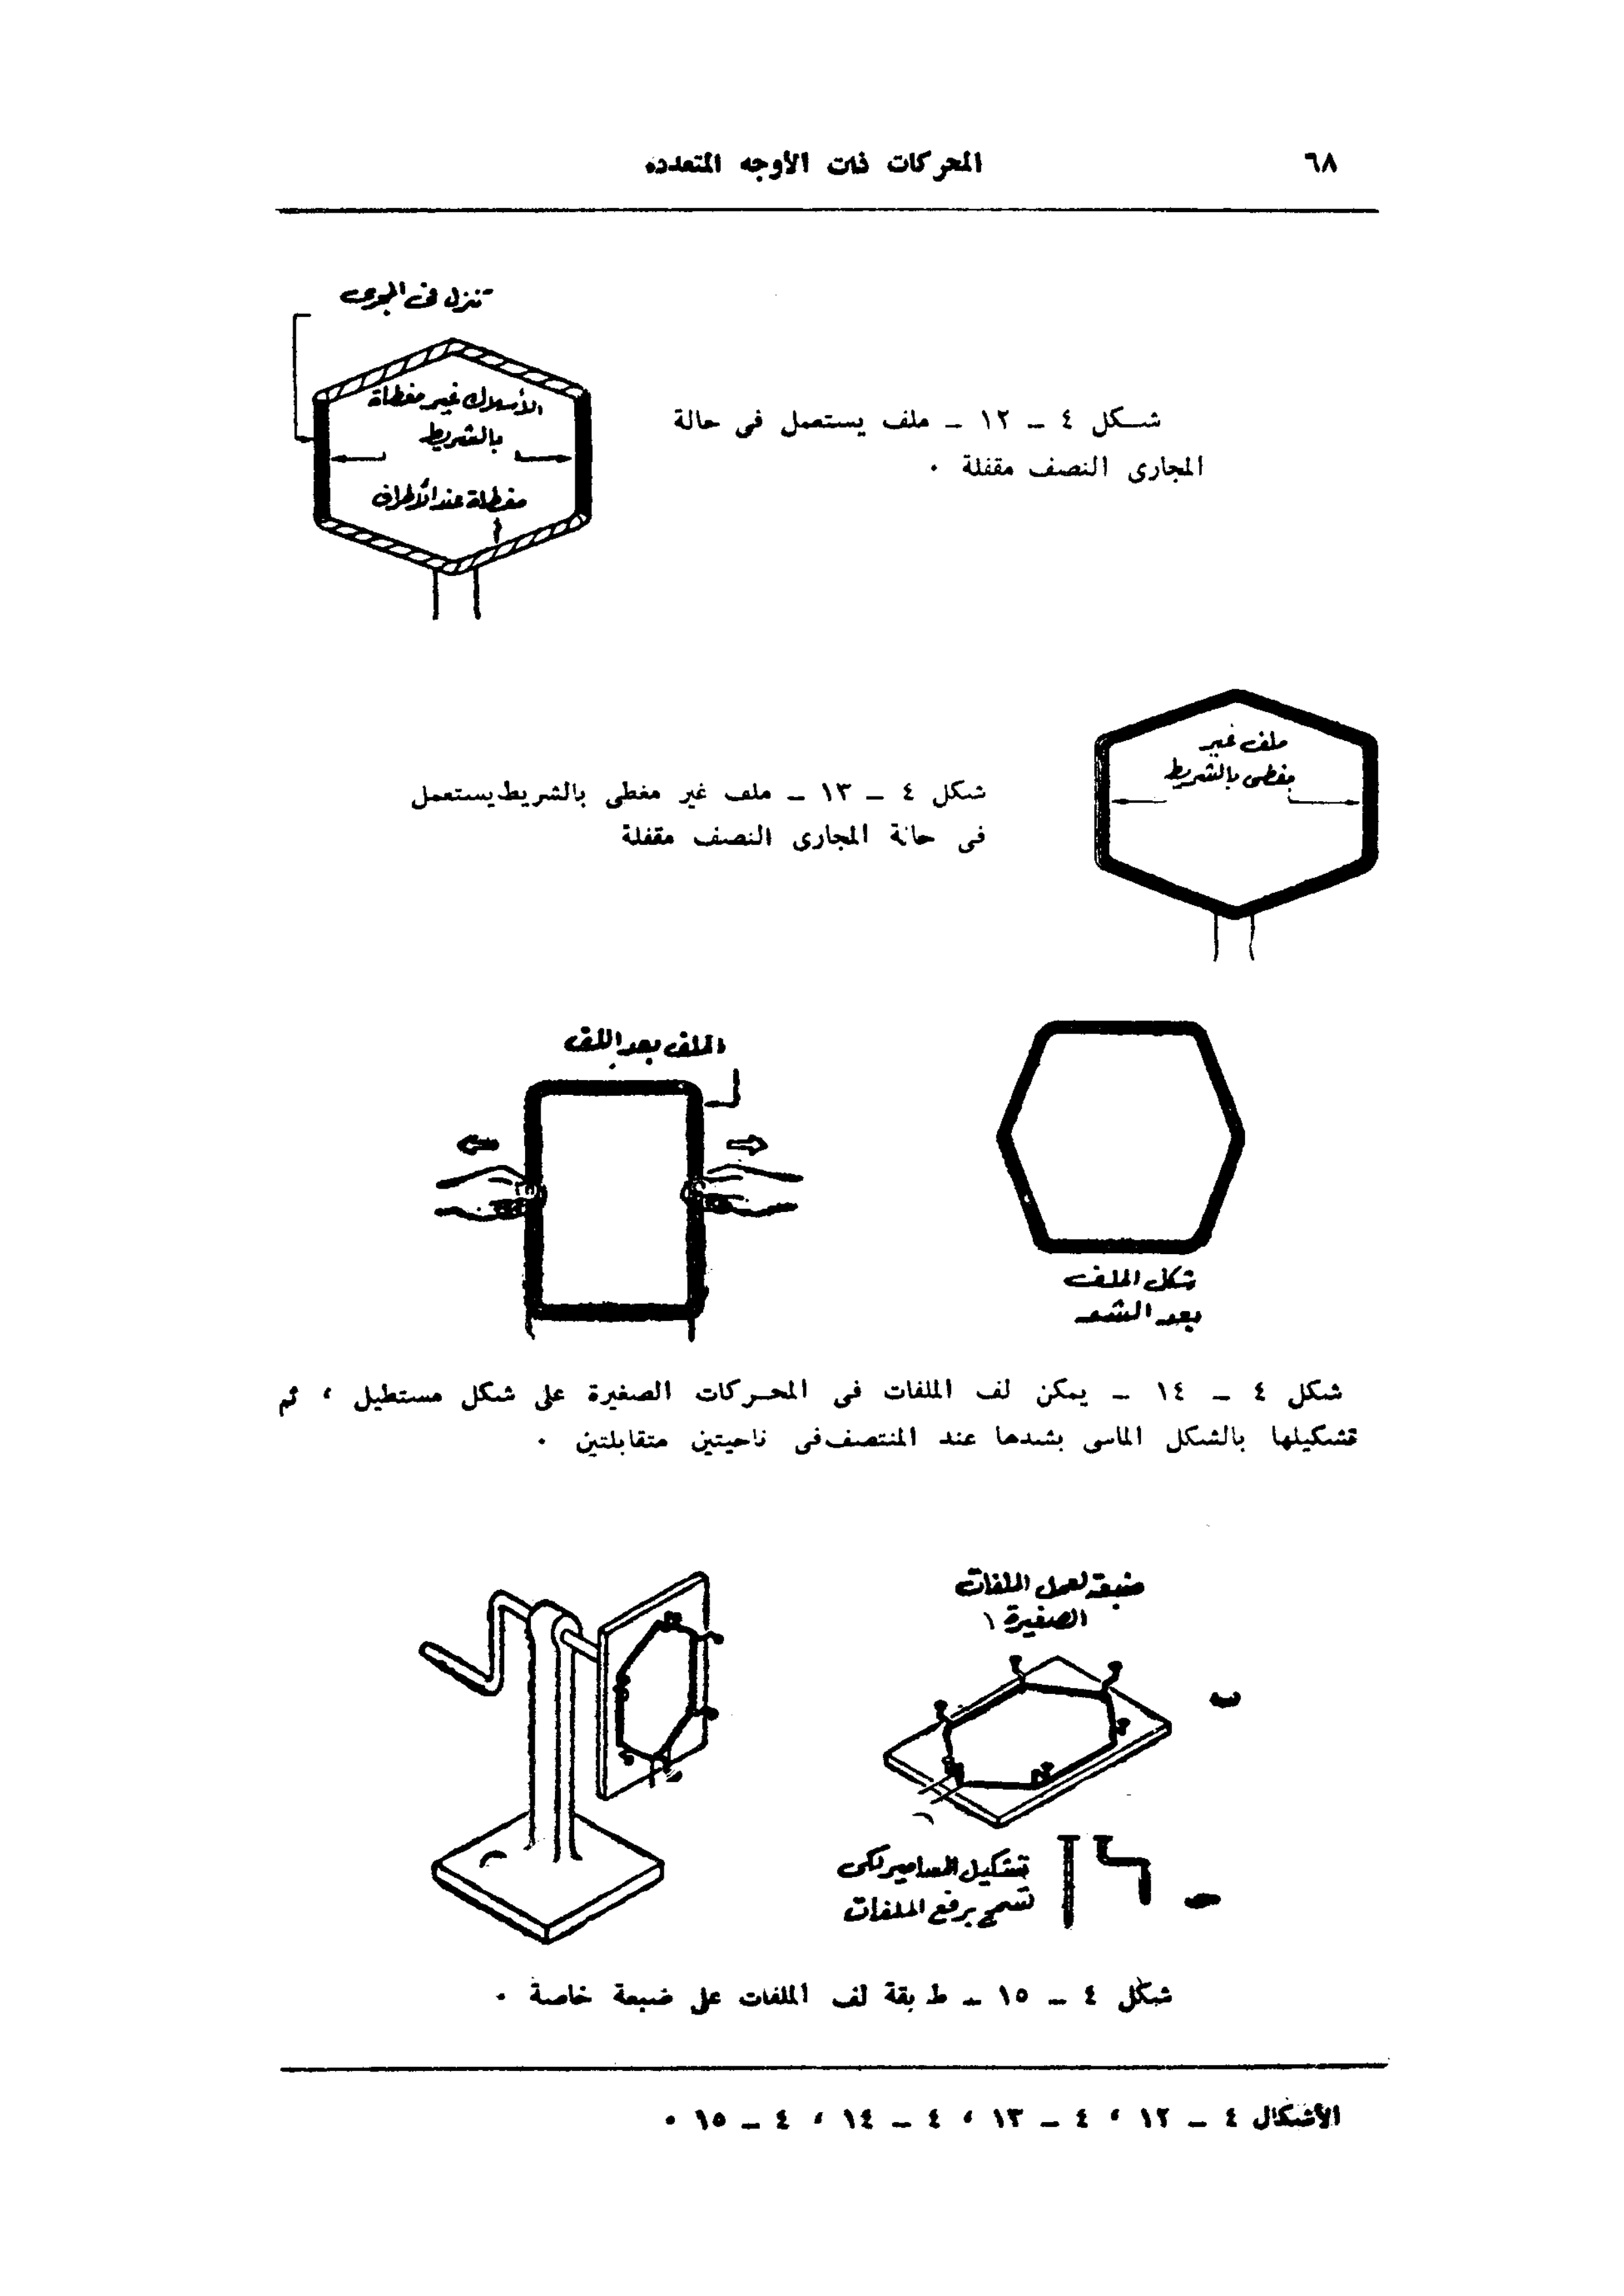 ٦٨
المحركات ذات الأوجه المتعدده
تنزل فى المجرى
الأسلاك غير مغطاة
بالشريط
مغطاة عند الأطراف
شكل ٤ – ١٢ – ملف يستعمل فى حالة
المجارى النصف مقفلة ٠
ملف غير
مغطى بالشريط
شكل ٤ – ١٣ – ملف غير مغطى بالشريط يستعمل
فى حالة المجارى النصف مقفلة
الملف بعد اللف
شكل الملف
بعد الشد
شكل ٤ – ١٤ – يمكن لف الملفات فى المحركات الصغيرة على شكل مستطيل ، ثم
تشكيلها بالشكل الماسى بشدها عند المنتصف فى ناحيتين متقابلتين ٠
ضبعة لعمل الملفات
الصغيرة ١
تشكيل المسامير لكى
تسمح برفع الملفات
شكل ٤ – ١٥ – ط بقة لف الملفات على ضبعة خاصة ٠
الأشكال ٤ – ١٢ ، ٤ – ١٣ ، ٤ – ١٤ ، ٤ – ١٥ ٠